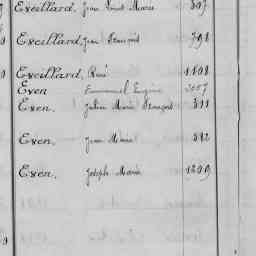 Eveillard, Jean Louis Marie 807
Eveillard, Jean François 798
Eveillard, René 1808
Even Emmanuel Eugène
Even, Julien Marie François 811
Even, Jean Marie 812
Even, Joseph Marie 1809